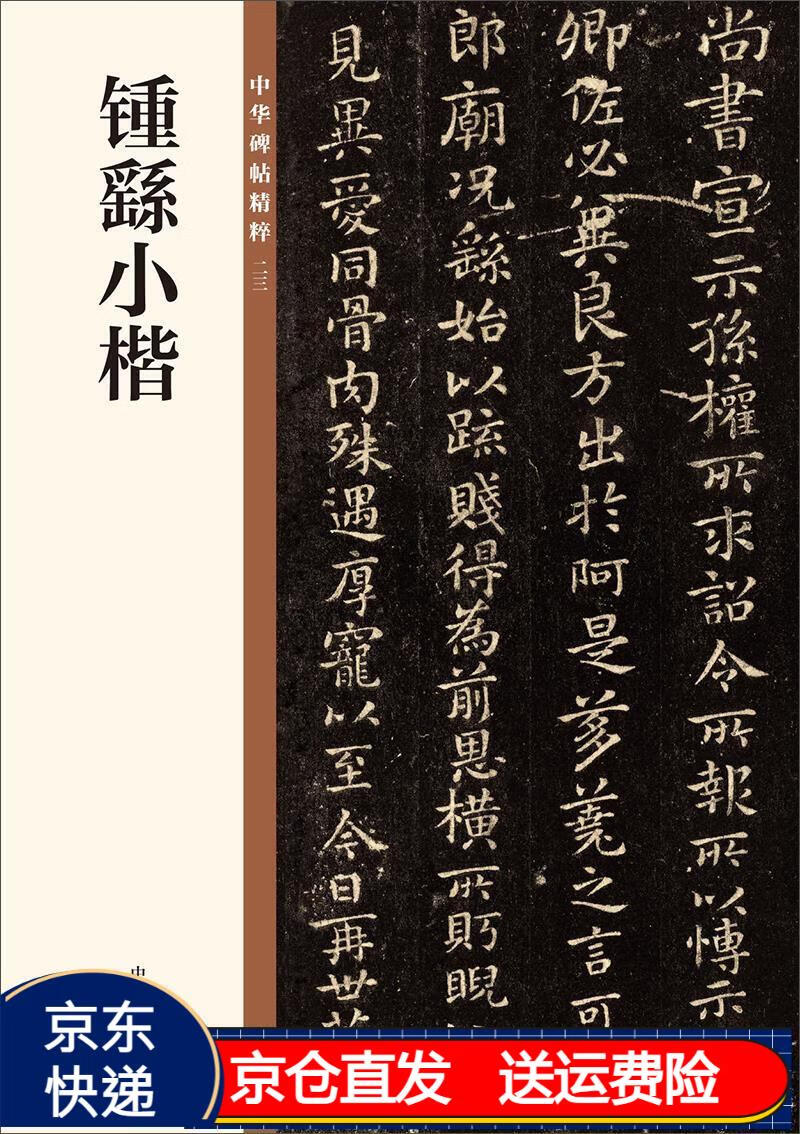 锺繇小楷
中华碑帖精粹 二三
尚書宣示孫權所求詔令所報所以博示
卿佐必冀良方出於阿是芻蕘之言可
郎廟況繇始以疏賤得為前恩橫所眄睨
見異愛同骨肉殊遇厚寵以至今日再世
中
京东
快递
京仓直发 送运费险